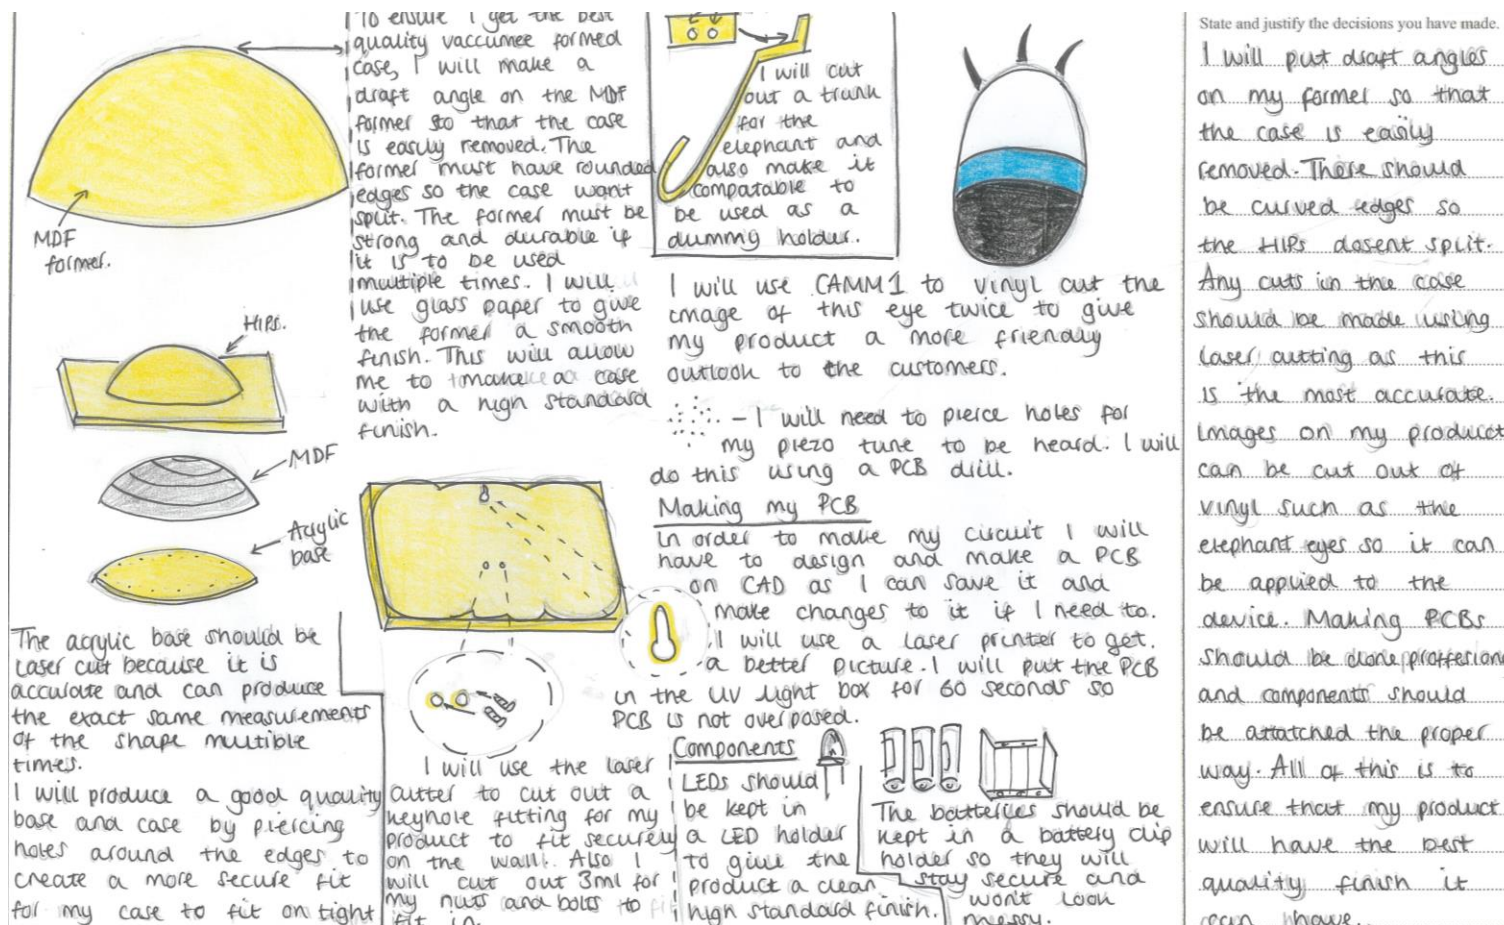 MDF
former.
HIPs.
MDF
Acrylic
base
The acrylic base should be
laser cut because it is
accurate and can produce
the exact same measurements
of the shape multible
times.
I will produce a good quality
base and case by piercing
holes around the edges to
create a more secure fit
for my case to fit on tight
To ensure I get the best
quality vaccumee formed
case, I will make a
draft angle on the MDF
former so that the case
is easily removed. The
former must have rounded
edges so the case wont
split. The former must be
strong and durable if
it is to be used
multiple times. I will
use glass paper to give
the former a smooth
finish. This will allow
me to make a case
with a high standard
finish.
I will use the laser
cutter to cut out a
keyhole fitting for my
product to fit securely
on the wall. Also I
will cut out 3ml for
my nuts and bolts to
fit in.
I will cut
out a trunk
for the
elephant and
also make it
compatable to
be used as a
dummy holder.
I will use CAMM1 to vinyl cut the
image of this eye twice to give
my product a more friendly
outlook to the customers.
- I will need to pierce holes for
my piezo tune to be heard. I will
do this using a PCB drill.
Making my PCB
In order to make my circuit I will
have to design and make a PCB
on CAD as I can save it and
make changes to it if I need to.
I will use a laser printer to get
a better picture. I will put the PCB
in the UV light box for 60 seconds so
PCB is not overposed.
Components
LEDs should
be kept in
a LED holder
to give the
product a clean
high standard finish.
The batteries should be
kept in a battery clip
holder so they will
stay secure and
won't look
messy.
State and justify the decisions you have made.
I will put draft angles
on my former so that
the case is easily
removed. There should
be curved edges so
the HIPs dosent split.
Any cuts in the case
should be made using
laser cutting as this
is the most accurate.
Images on my product
can be cut out of
vinyl such as the
elephant eyes so it can
be applied to the
device. Making PCBs
should be done
and components should
be attatched the proper
way. All of this is to
ensure that my product
will have the best
quality finish it
can have.